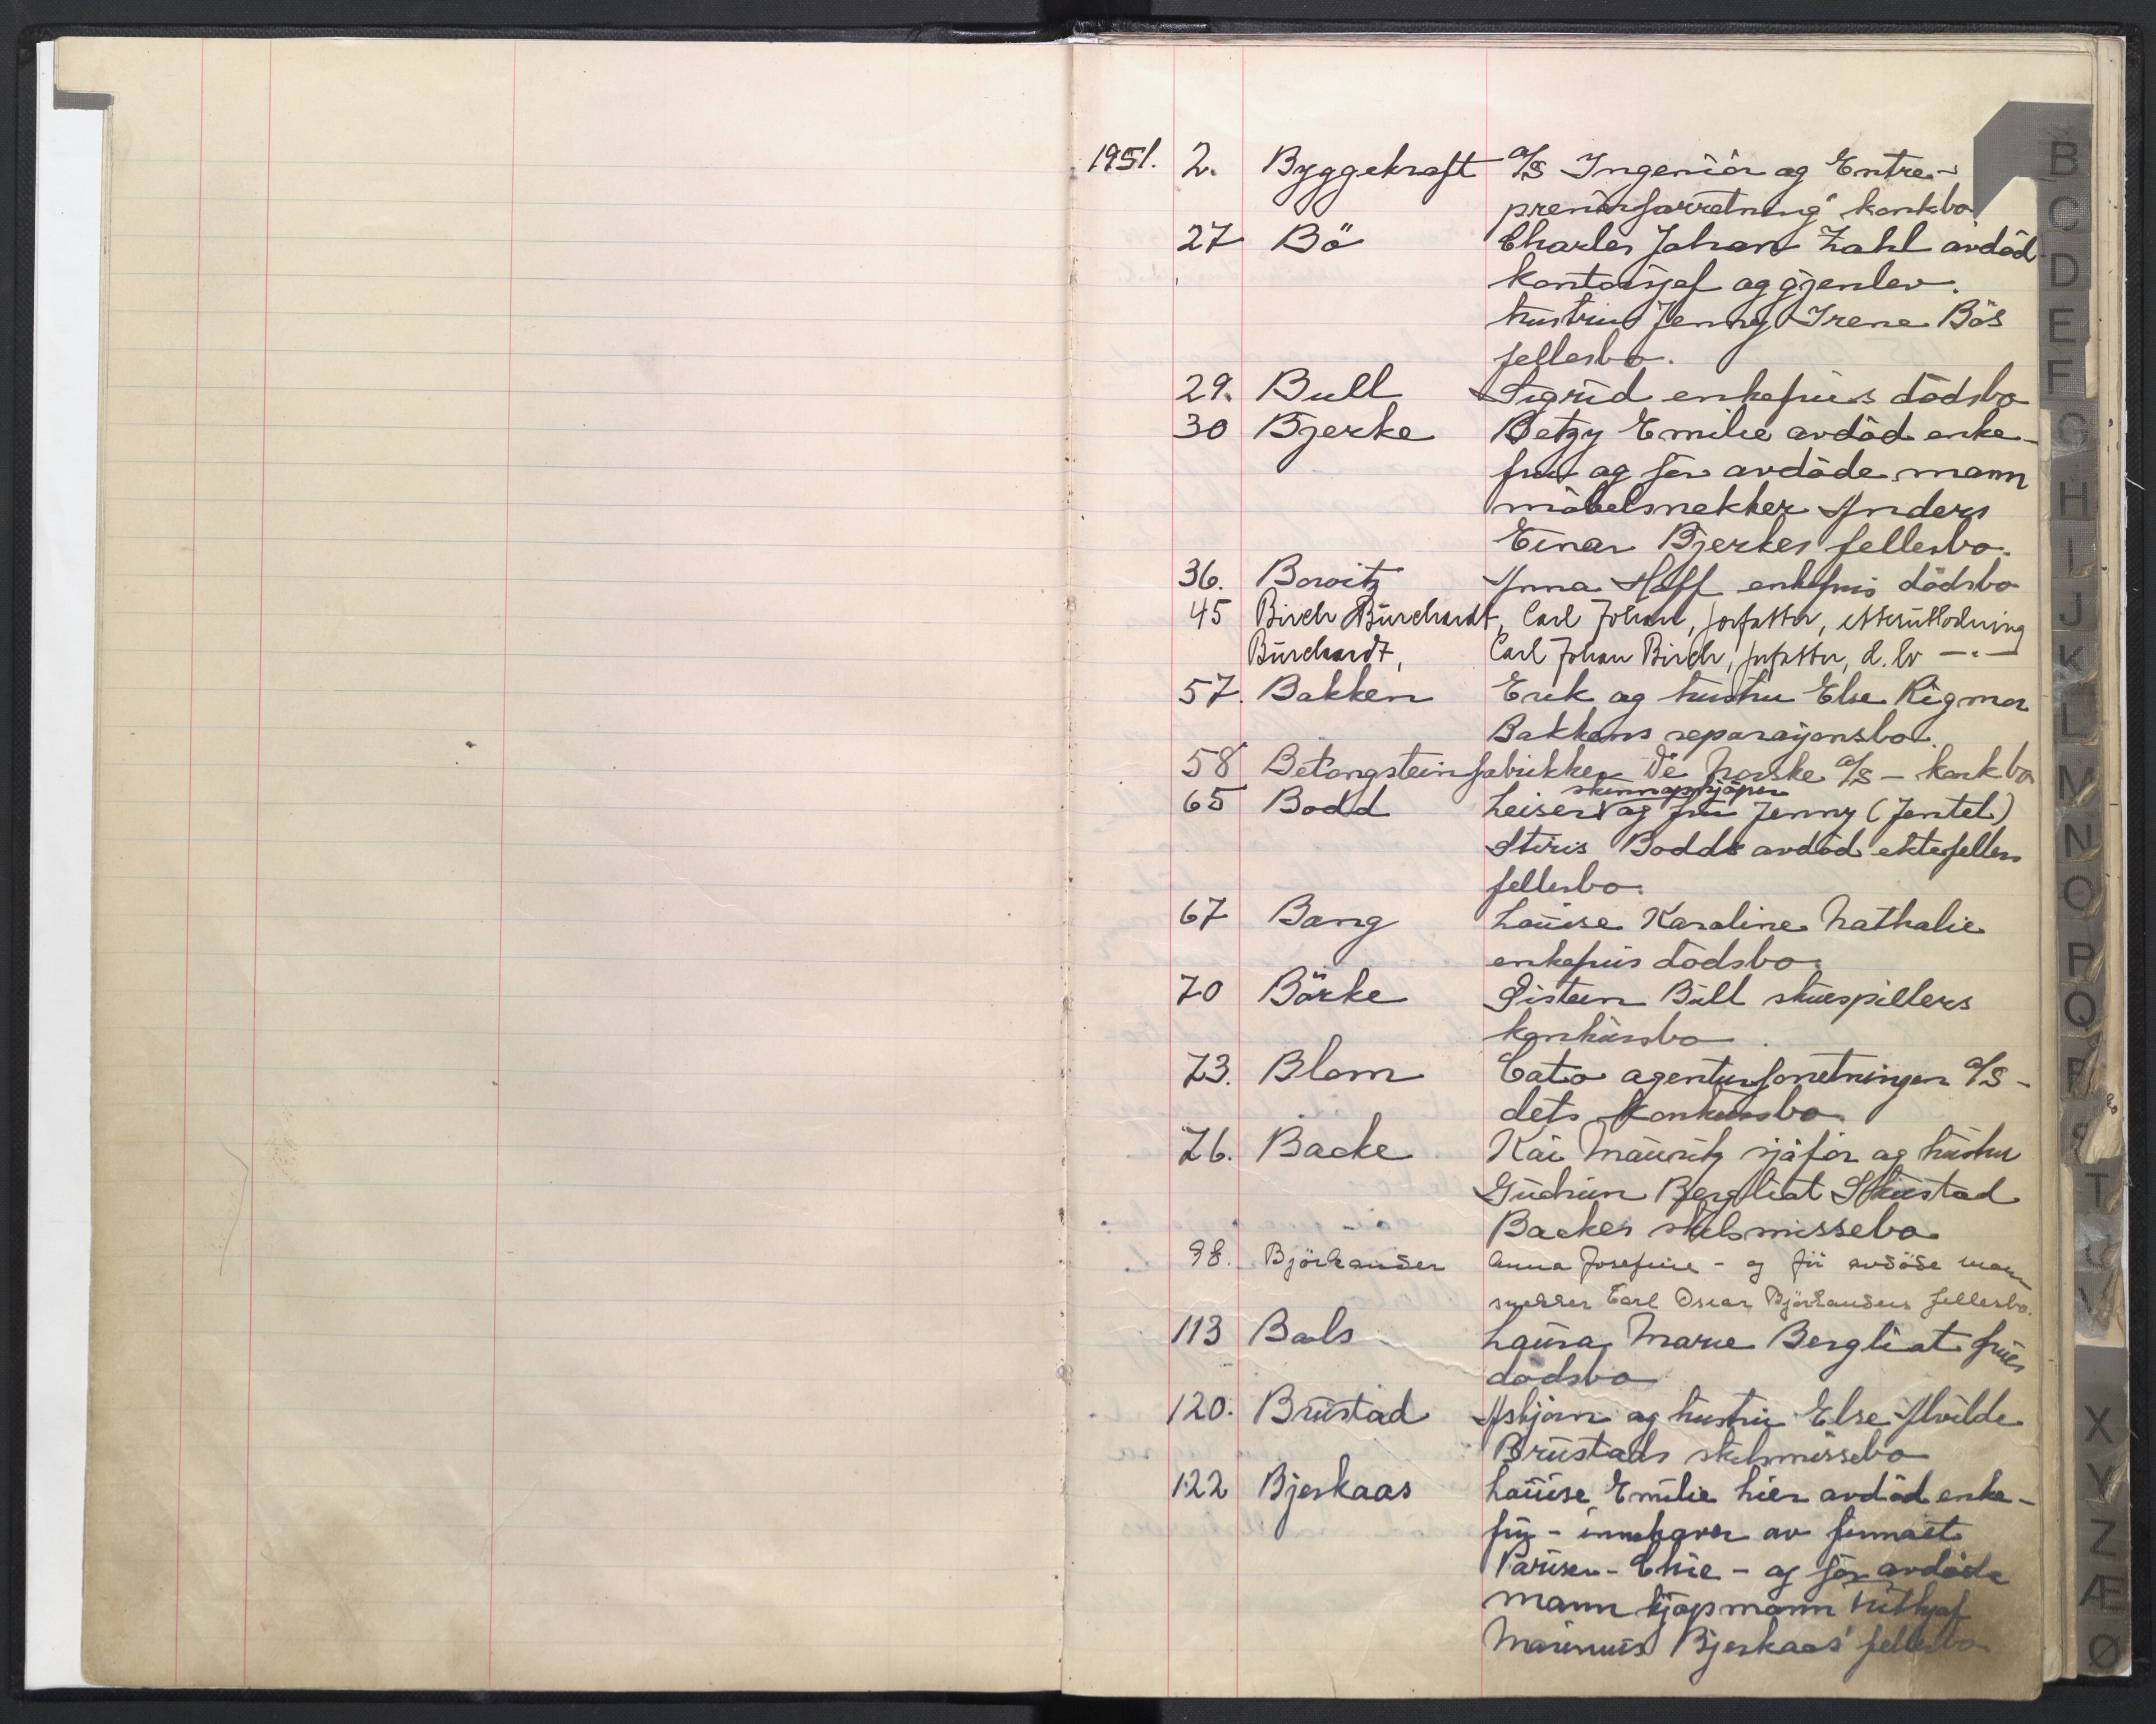 1951. 2. Byggekraft a/s Ingeniör og Entre-
prenörforretning" konkbo
27 Bö Charles Johan Zahl avdöd
kontorsjef og gjenlev.
hustru Jenny Irene Bös
fellesbo.
29. Bull Sigrid enkefrus dödsbo
30 Bjerke Betzy Emilie avdöd enke-
fru og för avdöde mann
möbelsnekker Anders
Einar Bjerkes fellesbo.
36. Borvitz Anna Hoff enkefrus dödsbo
45 Birch Burchardt, Carl Johan, forfatter, etterutlodning
Burchardt, Carl Johan Birch, forfatter, d.bo —"—
57. Bakken Erik og hustru Else Rigmor
Bakkens separasjonsbo.
58 Betongsteinfabrikker De Norske a/s - konkbo
skinnoppkjöper
65 Bodd Leiser og fru Jenny (Jentel)
Stiris Bodds avdöd ektefellers
fellesbo.
67 Bang Louise Karoline Nathalie
enkefrus dödsbo.
70 Börke Öistein Bull skuespillers
konkursbo.
73. Blom Cato agenturforretningen a/s -
dets konkursbo
76. Backe Kai Mauritz sjåför og hustru
Gudrun Bergliot Skustad
Backes skilsmissebo
98. Björkander Anna Josefine - og för avdöde mann
snekker Carl Oscar Björkanders fellesbo.
113 Bals Laura Marie Bergliot frues
dödsbo
120. Brustad Asbjörn og hustru Else Alvilde
Brustads skilsmissebo
122 Bjerkaas Louise Emilie Lien avdöd enke-
fru - innehaver av firmaet
Pariser-Chic - og för avdöde
mann kjöpmann Frithjof
Marinius Bjerkaas' fellesbo
B
C
D
E
F
G
H
I
J
K
L
M
N
O
P
Q
R
S
T
U
V
X
Y
Z
Æ
Ø